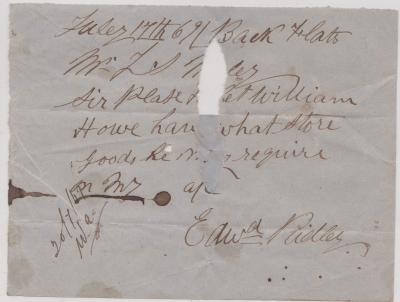 July 17th 69 / Back Flats
Mr. T S
Sir Plase Let William
Howe have what store
goods he may require
on my
Edwd Ridley
20/7/69